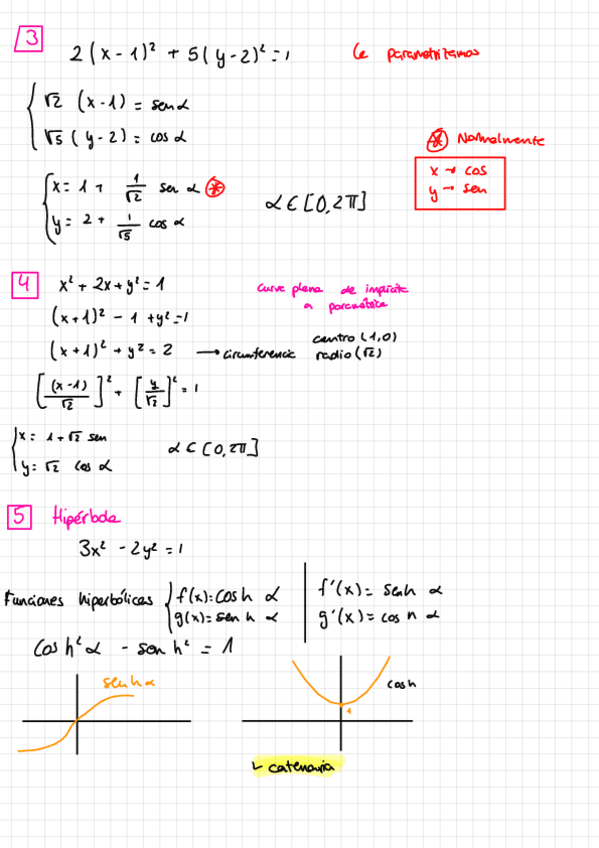 3
2(x-1)² + 5(y-2)² = 1 Le parametrizamos
√2 (x-1) = sen α
√5 (y-2) = cos α
⊛ Normalmente
x → cos
y → sen
x = 1 + 1/√2 sen α ⊛
y = 2 + 1/√5 cos α
α ∈ [0, 2π]
4 x² + 2x + y² = 1
curva plana de implícita
a paramétrica
(x+1)² - 1 + y² = 1
(x+1)² + y² = 2 → circunferencia centro (1,0)
radio (√2)
[(x-1)/√2]² + [y/√2]² = 1
x = 1 + √2 sen
y = √2 cos α
α ∈ [0, 2π]
5 Hipérbola
3x² - 2y² = 1
Funciones hiperbólicas
f(x) = cosh α
g(x) = senh α
f'(x) = senh α
g'(x) = cosh α
cosh² α - senh² = 1
senh α
cosh
1
↳ catenaria